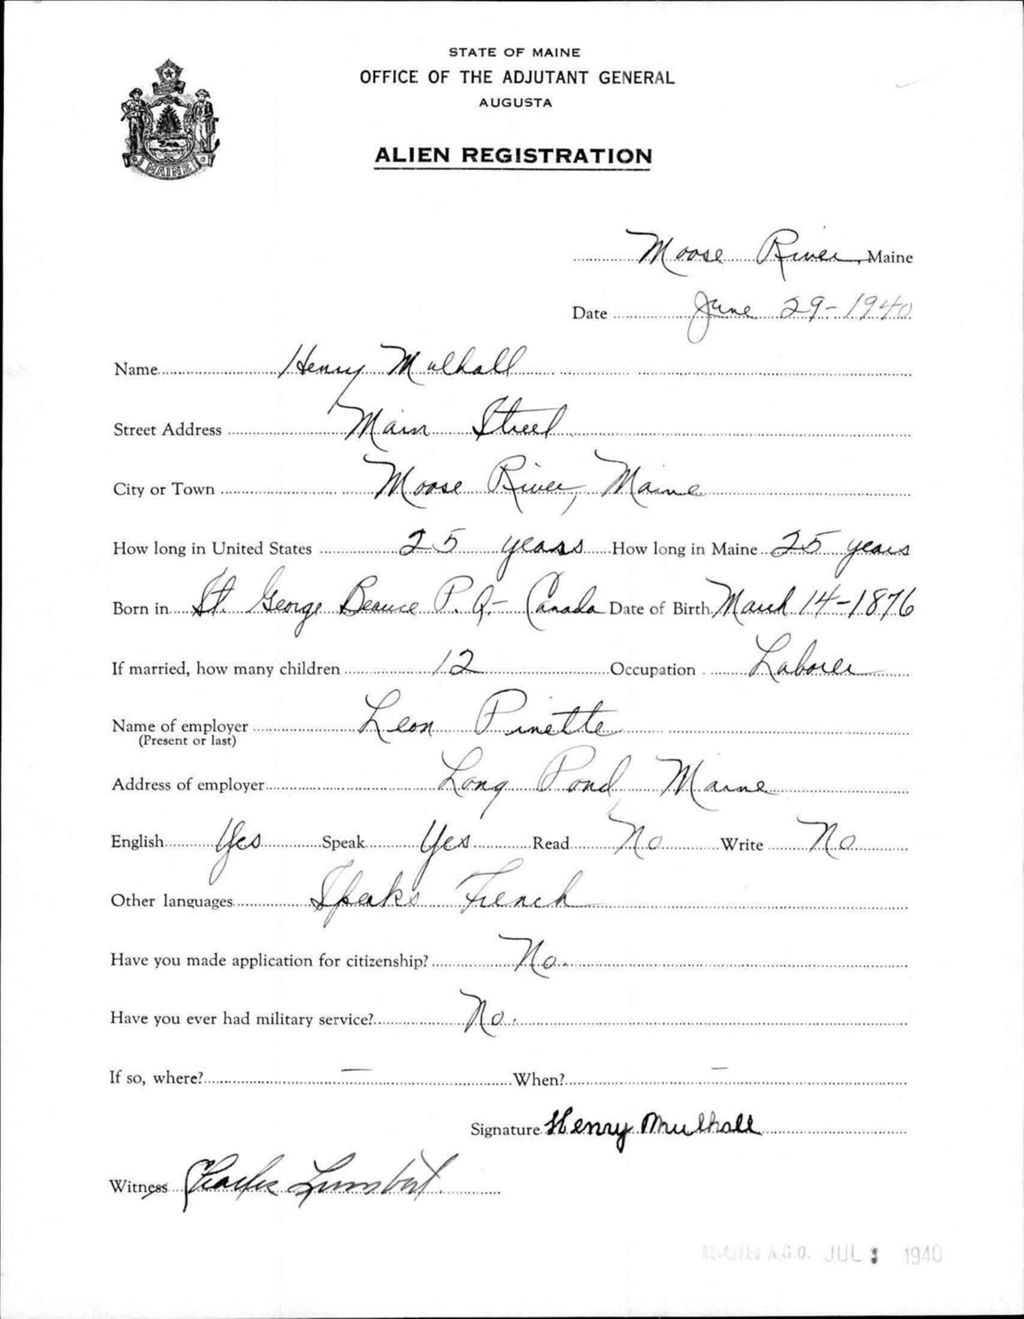 STATE OF MAINE
OFFICE OF THE ADJUTANT GENERAL
AUGUSTA
ALIEN REGISTRATION
MAINE
Moose River, Maine
Date June 29-1940
Name Henry Mulhall
Street Address Main Street
City or Town Moose River, Maine
How long in United States 25 years How long in Maine 25 years
Born in St. George Beauce P. Q.- Canada Date of Birth March 14-1876
If married, how many children 12 Occupation Laborer
Name of employer Leon Pinette
(Present or last)
Address of employer Long Pond Maine
English Yes Speak Yes Read No Write No
Other languages Speaks French
Have you made application for citizenship? No.
Have you ever had military service? No.
If so, where? — When? —
Signature Henry Mulhall
Witness Charles
A.G.O. JUL 1940